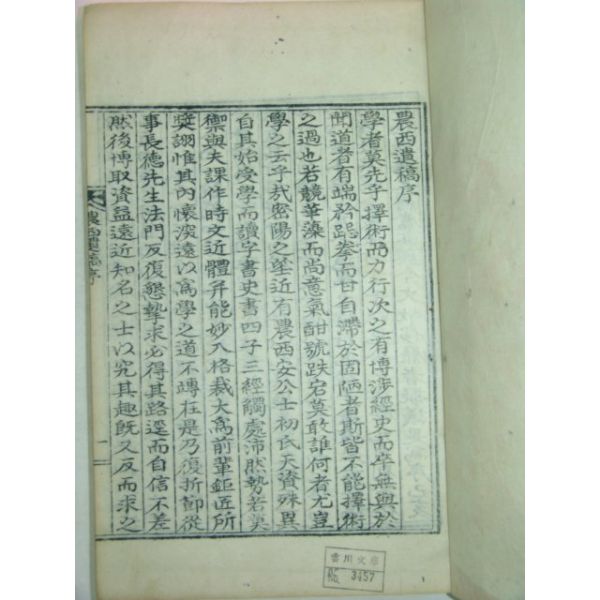 農西遺稿序
學者莫先乎擇術而力行次之有博涉經史而卒無與於
聞道者有端矜跽拳而甘自滯於固陋者斯皆不能擇術
之過也若競華藻而尚意氣酣號跌宕莫敢誰何者尤豈
學之云乎哉密陽之莑近有農西安公士初氏天資殊異
自其始受學而讀字書史書四子三經觸處沛然勢若莫
禦與夫課作時文近體并能妙入格裁大爲前輩鉅匠所
奬詡惟其內懷淡遠以爲學之道不專在是乃復折節從
事長德先生法門反復懇摯求必得其路逕而自信不差
然後博取資益遠近知名之士以究其趣旣又反而求之
農西遺稿序
一
雲川文庫
No. 3457